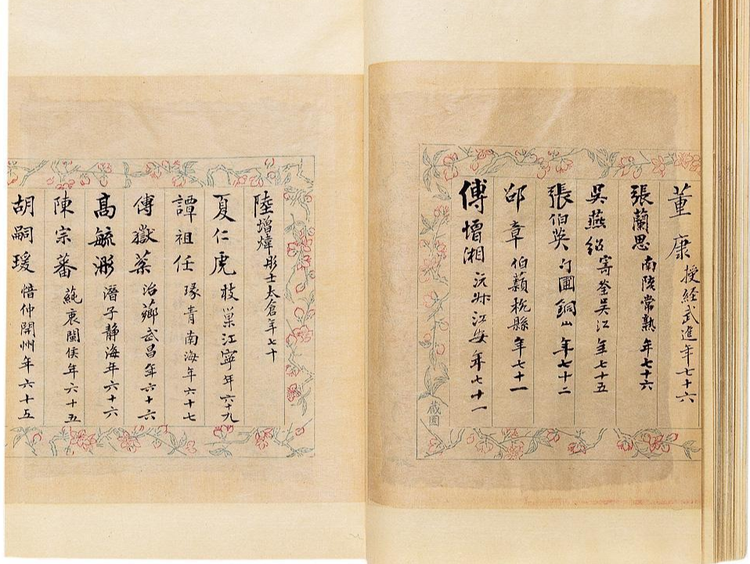 董康授經武進年七十六
張蘭思南陔常熟年七十六
吳燕紹寄荃吳江年七十五
張伯英勺圃銅山年七十二
邵章伯杭縣年七十一
傅增湘沅叔江安年七十一
藏園
陸增煒彤士太倉年七十
夏仁虎枝巢江寧年六十九
譚祖任瑑青南海年六十七
傅嶽棻治薌武昌年六十六
高毓浵潛子靜海年六十六
陳宗蕃蒓衷閩侯年六十五
胡嗣瑗愔仲開州年六十五